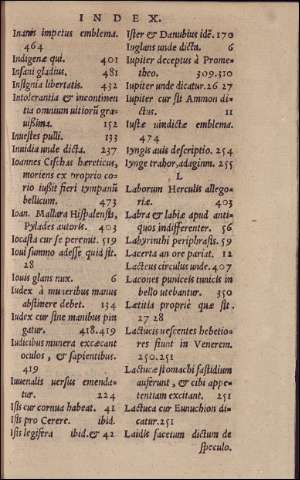 INDEX.
Inanis impetus emblema.
464
Indigenæ qui. 401
Insani gladius, 481
Insignia libertatis. 452
Intolerantia & incontinen
tia omnium ultiorũ gra-
uissima. 152
Inuestes pulli. 133
Inuidia unde dicta. 237
Ioannes Cischas hæreticus,
moriens ex proprio co-
rio iußit fieri tympanũ
bellicum. 473
Ioan. Mallara Hispalensis,
Pylades autoris. 403
Iocasta cur se peremit. 519
Ioui summo adesse quid sit.
28
Iouis glans nux. 6
Iudex à muneribus manus
abstinere debet. 154
Iudex cur sine manibus pin
gatur. 418.419
Iudicibus munera excæcant
oculos, & sapientibus.
419
Iuuenalis uersus emenda-
tur. 224
Isis cur cornua habeat. 41
Isis pro Cerere. ibid.
Isis legifera ibid.& 42
Ister & Danubius idẽ. 170
Iuglans unde dicta. 6
Iupiter deceptus à Prome-
theo. 309.310
Iupiter unde dicatur. 26 27
Iupiter cur sit Ammon di-
ctus. 11
Iustæ uindictæ emblema.
474
Iyngis auis descriptio. 254
Iynge trahor, adagium. 255
L
Laborum Herculis allego-
riæ. 403
Labra & labia apud anti-
quos indifferenter. 56
Labyrinthi periphrasis. 59
Lacerta an ore pariat. 12
Lacteus circulus unde. 407
Lacones puniceis tunicis in
bello utebantur. 350
Lætitia propriè quæ sit.
27 28
Lactucis uescentes hebetio-
res fiunt in Venerem.
250.251
Lactucæ stomachi fastidium
auferunt, & cibi appe-
tentiam excitant. 251
Lactuca cur Eunuchion di-
catur. 251
Laidis facetum dictum de
speculo.